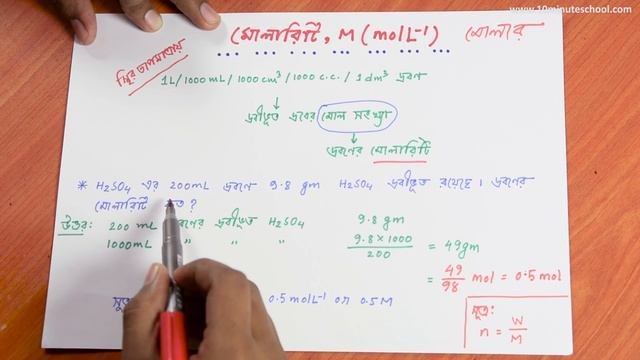 www.10minuteschool.com
মোলারিটি, M (molL⁻¹) মোলার
স্থির তাপমাত্রায়
1L / 1000 mL / 1000 cm³ / 1000 c.c. / 1 dm³ দ্রবণ
↓
দ্রবীভূত দ্রবের মোল সংখ্যা
↓
দ্রবণের মোলারিটি
* H₂SO₄ এর 200mL দ্রবণে 9.8 gm H₂SO₄ দ্রবীভূত রয়েছে। দ্রবণের
মোলারিটি ?
উত্তর: 200 mL দ্রবীভূত H₂SO₄ 9.8 gm
1000mL " " " 9.8 × 1000 / 200 = 49gm
= 49/98 mol = 0.5 mol
0.5 molL⁻¹ বা 0.5 M
সূত্র:
n = W/M